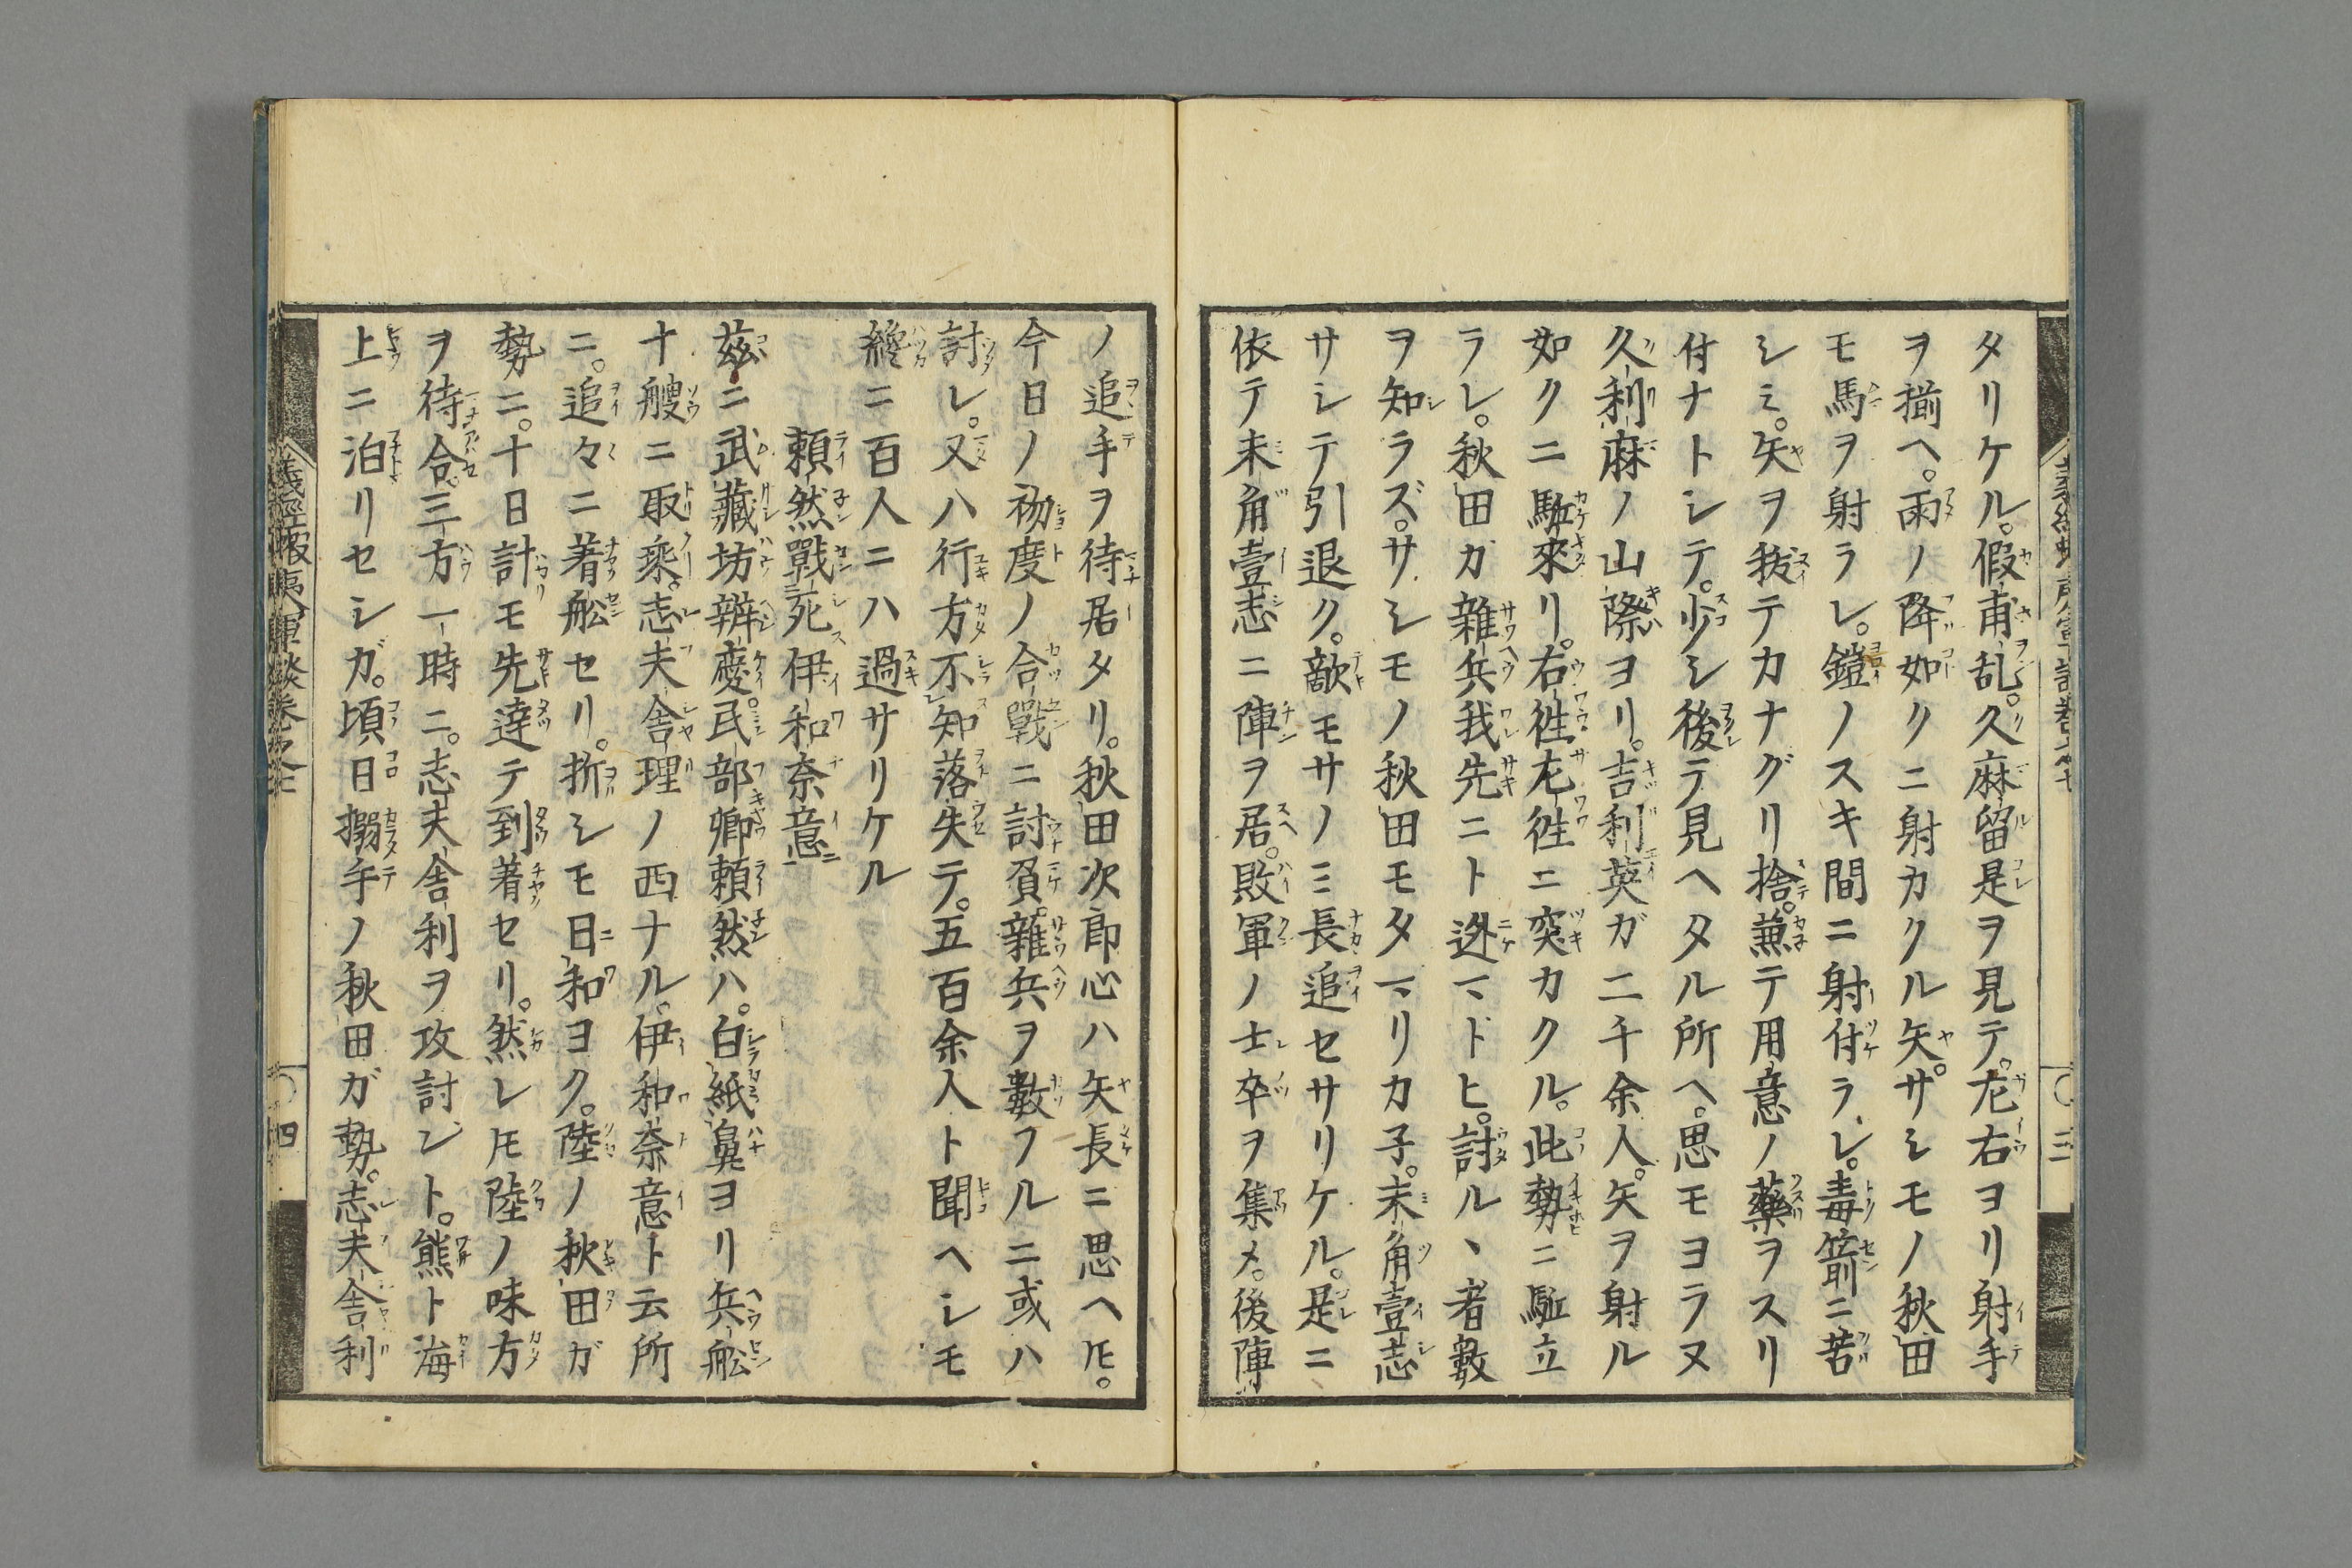 タリケル。假甫乱。久麻留是ヲ見テ。左右ヨリ射手
ヲ揃ヘ。雨ノ降如クニ射カクル矢。サシモノ秋田
モ馬ヲ射ラレ。鎧ノスキ間ニ射付ラレ。毒箭ニ苦
シミ。矢ヲ抜テカナグリ捨。兼テ用意ノ藥ヲスリ
付ナトシテ。少シ後テ見ヘタル所ヘ。思モヨラヌ
久利麻ノ山際ヨリ。吉利英ガ二千余人。矢ヲ射ル
如クニ駈來リ。右徃左徃ニ突カクル。此勢ニ駈立
ラレ。秋田ガ雜兵我先ニト迯マドヒ。討ルヽ者數
ヲ知ラズ。サシモノ秋田モタマリカ子。末角壹志
サシテ引退ク。敵モサノミ長追セサリケル。是ニ
依テ未角壹志ニ陣ヲ居。敗軍ノ士卒ヲ集メ。後陣
ノ追手ヲ待居タリ。秋田次郎心ハ矢長ニ思ヘ𪜈。
今日ノ初度ノ合戰ニ討負。雜兵ヲ數フルニ或ハ
討レ。又ハ行方不知落失テ。五百余人ト聞ヘシモ
纔ニ百人ニハ過サリケル
頼然戰死伊和奈意
茲ニ武藏坊辨慶。民部卿頼然ハ。白紙鼻ヨリ兵舩
十艘ニ取乘。志夫舎理ノ西ナル。伊和奈意ト云所
ニ。追々ニ着舩セリ。折シモ日和ヨク。陸ノ秋田ガ
勢ニ。十日計モ先達テ到着セリ。然レ𪜈陸ノ味方
ヲ待合三方一時ニ。志夫舎利ヲ攻討ント。熊ト海
上ニ泊リセシガ。頃日搦手ノ秋田ガ勢。志夫舎利
義經蝦夷軍談巻之
四